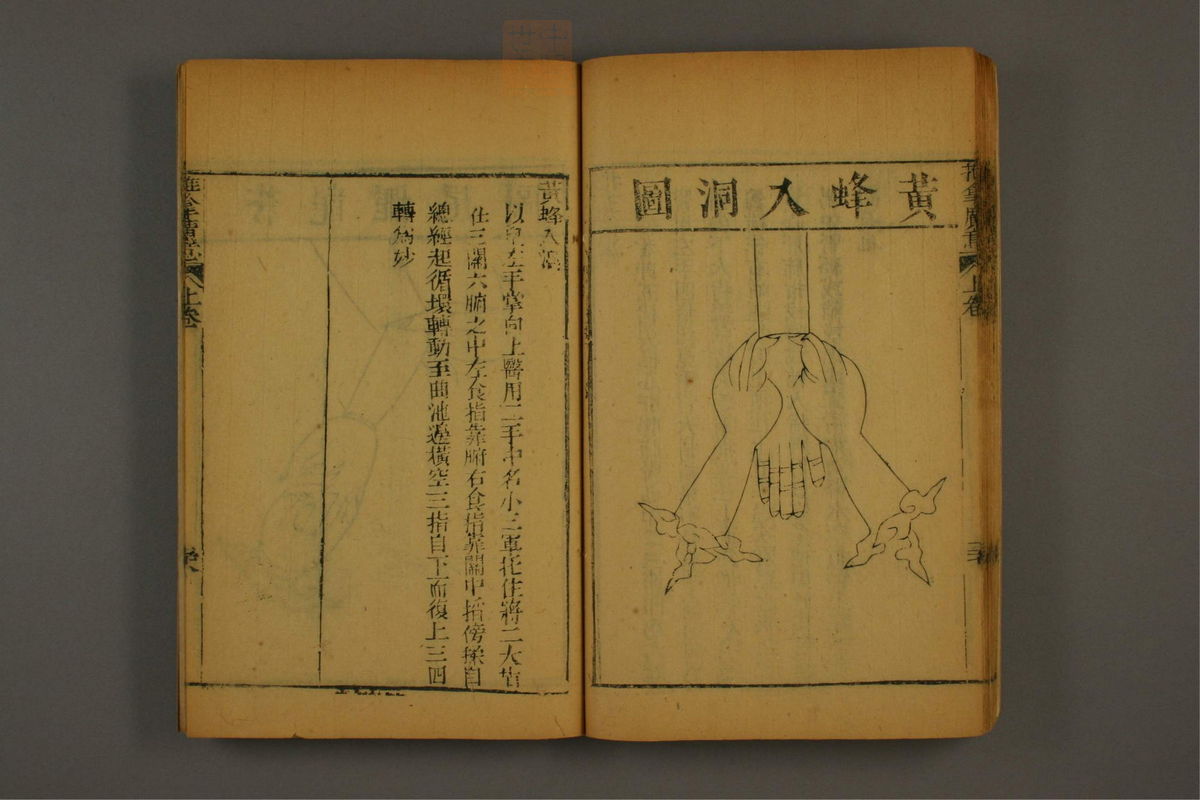 黃蜂入洞圖
上卷
黃蜂入洞
以兒左手掌向上醫用二手中名小三軍托住將二大指
在三關六腑之中左食指靠腑右食指靠關中搯傍揉自
總經起循環轉動至曲池邊橫空三指自下而復上三四
轉為妙
上卷